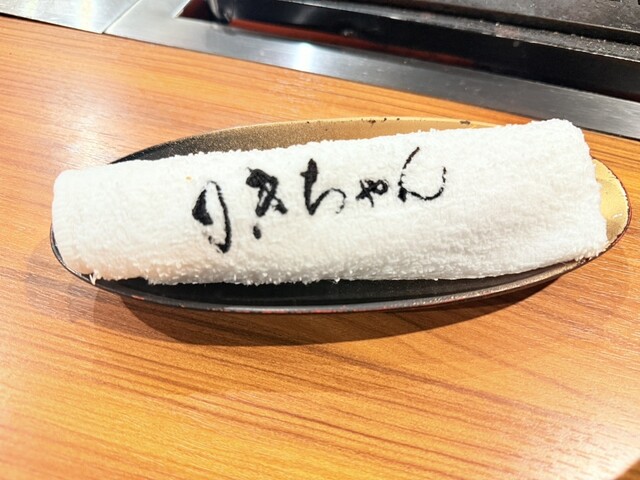 りきちゃん